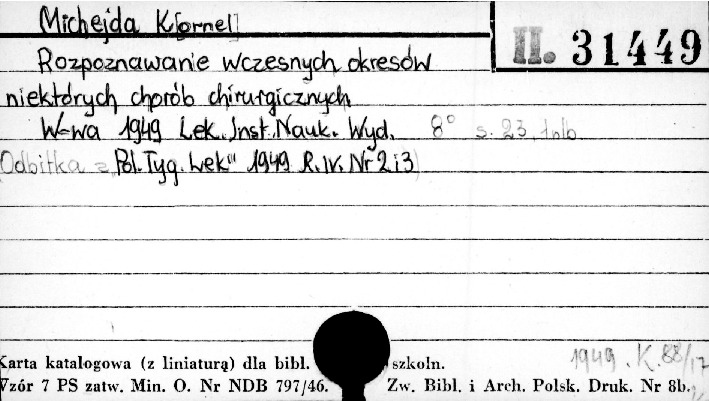 Michejda K[ornel]
II. 31449
Rozpoznawanie wczesnych okresów
niektórych chorób chirurgicznych
W-wa 1949 Lek. Inst. Nauk. Wyd. 8° s. 23, 1 nlb
(Odbitka z „Pol. Tyg. Lek" 1949 R. IV. Nr 2 i 3)
1949. K. 88/17
Karta katalogowa (z liniaturą) dla bibl. szkoln.
Wzór 7 PS zatw. Min. O. Nr NDB 797/46. Zw. Bibl. i Arch. Polsk. Druk. Nr 8b.